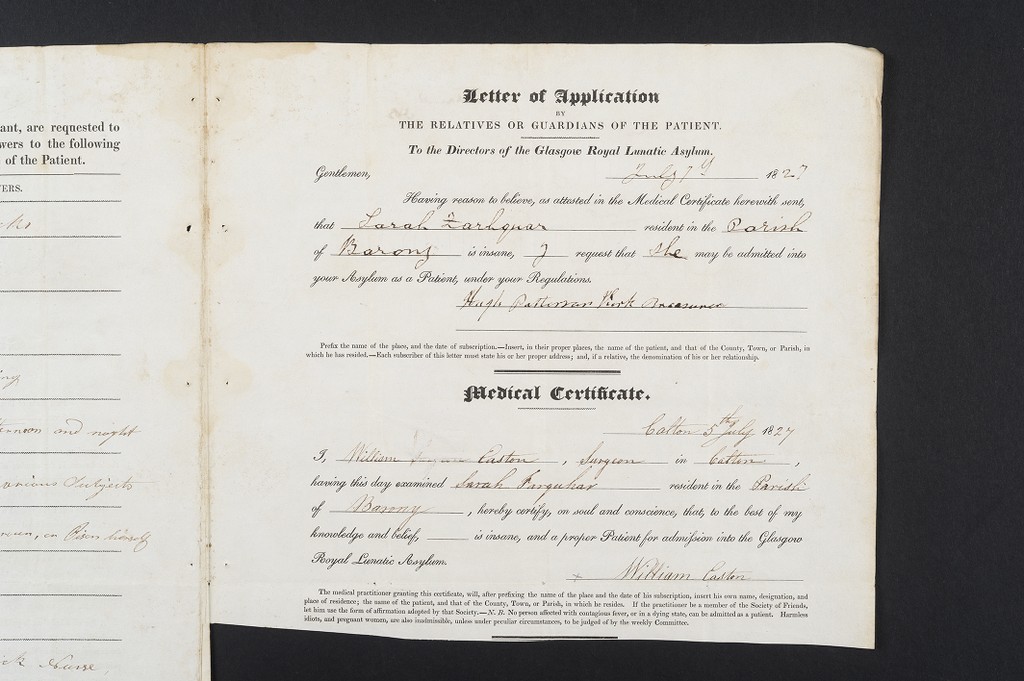 ant, are requested to
wers to the following
of the Patient.
VERS.
ing
ternoon and night
arious Subjects
or Pison himself
ick Nurse,
Letter of Application
BY
THE RELATIVES OR GUARDIANS OF THE PATIENT.
To the Directors of the Glasgow Royal Lunatic Asylum.
Gentlemen, July 7th 1827
Having reason to believe, as attested in the Medical Certificate herewith sent,
that Sarah Farhquar resident in the Parish
of Barony is insane, I request that She may be admitted into
your Asylum as a Patient, under your Regulations.
Hugh Patterson Kirk Treasurer
Prefix the name of the place, and the date of subscription.—Insert, in their proper places, the name of the patient, and that of the County, Town, or Parish, in
which he has resided.—Each subscriber of this letter must state his or her proper address; and, if a relative, the denomination of his or her relationship.
Medical Certificate.
Calton 5th July 1827
I, William Easton, Surgeon in Calton,
having this day examined Sarah Farquhar resident in the Parish
of Barony, hereby certify, on soul and conscience, that, to the best of my
knowledge and belief, is insane, and a proper Patient for admission into the Glasgow
Royal Lunatic Asylum.
x William Easton
The medical practitioner granting this certificate, will, after prefixing the name of the place and the date of his subscription, insert his own name, designation, and
place of residence; the name of the patient, and that of the County, Town, or Parish, in which he resides. If the practitioner be a member of the Society of Friends,
let him use the form of affirmation adopted by that Society.—N. B. No person affected with contagious fever, or in a dying state, can be admitted as a patient. Harmless
idiots, and pregnant women, are also inadmissible, unless under peculiar circumstances, to be judged of by the weekly Committee.